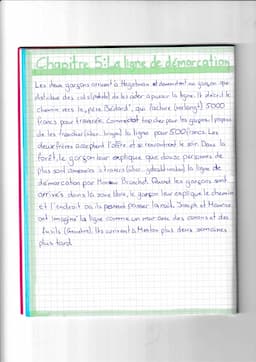 Chapitre 5: La ligne de démarcation
Les deux garçons arrivent à Hagetmau et demandent au garçon qui
distribue des de les aider a passer la ligne. Il décrit le
chemin vers le „père Bédard", qui facture 5000
francs pour traversée. Comme c'est trop cher pour les garçons, il propose
de les franchir la ligne pour 500 francs. Les
deux frères acceptent l'offre et se rencontrent le soir. Dans la
forêt, le garçon leur explique que douze personnes de
plus sont amenées à travers la ligne de
démarcation par Monsieur Branchet. Quand les garçons sont
arrivés dans la zone libre, le garçon leur explique le chemin
et l'endroit où ils peuvent passer la nuit. Joseph et Maurice
ont imaginé la ligne comme un mur avec des canons et des
fusils. Ils arrivent à Menton plus deux semaines
plus tard